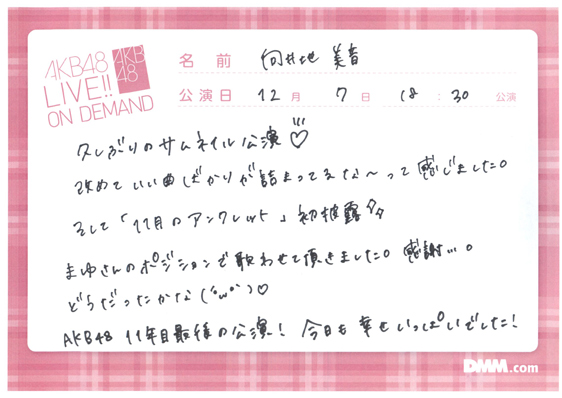 AKB48
LIVE!!
ON DEMAND
AKB
48
名前 向井地 美音
公演日 12月 7日 18:30 公演
久しぶりのサムネイル公演♡
改めていい曲ばかりが詰まってるな〜って感じました。
そして「11月のアンクレット」初披露
まゆさんのポジションで歌わせて頂きました。感謝…。
どうだったかな(°ω°)♡
AKB48 11年目最後の公演! 今日も幸せいっぱいでした!
DMM.com